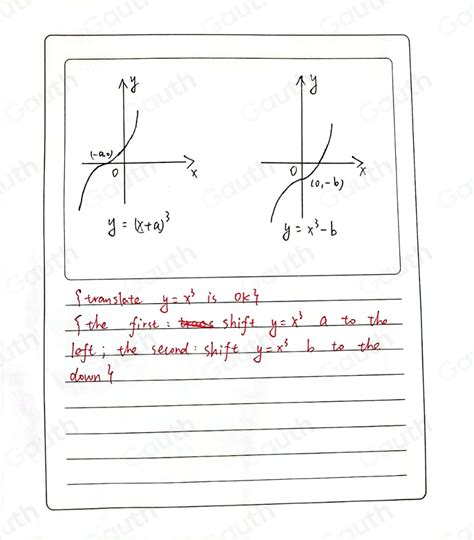 y
y
(-a,0)
0
x
0
(0,-b)
x
y = (x+a)³
y = x³-b
{translate y=x³ is OK}
{the first: trans shift y=x³ a to the
left; the second: shift y=x³ b to the
down}